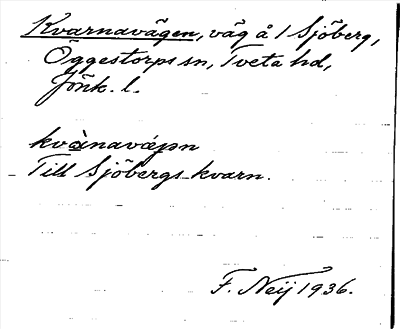 Kvarnavägen, väg å 1 Sjöberg,
Öggestorps sn, Tveta hd,
Jönk. l.
kvànavǽjən
Till Sjöbergs kvarn.
F. Neij 1936.